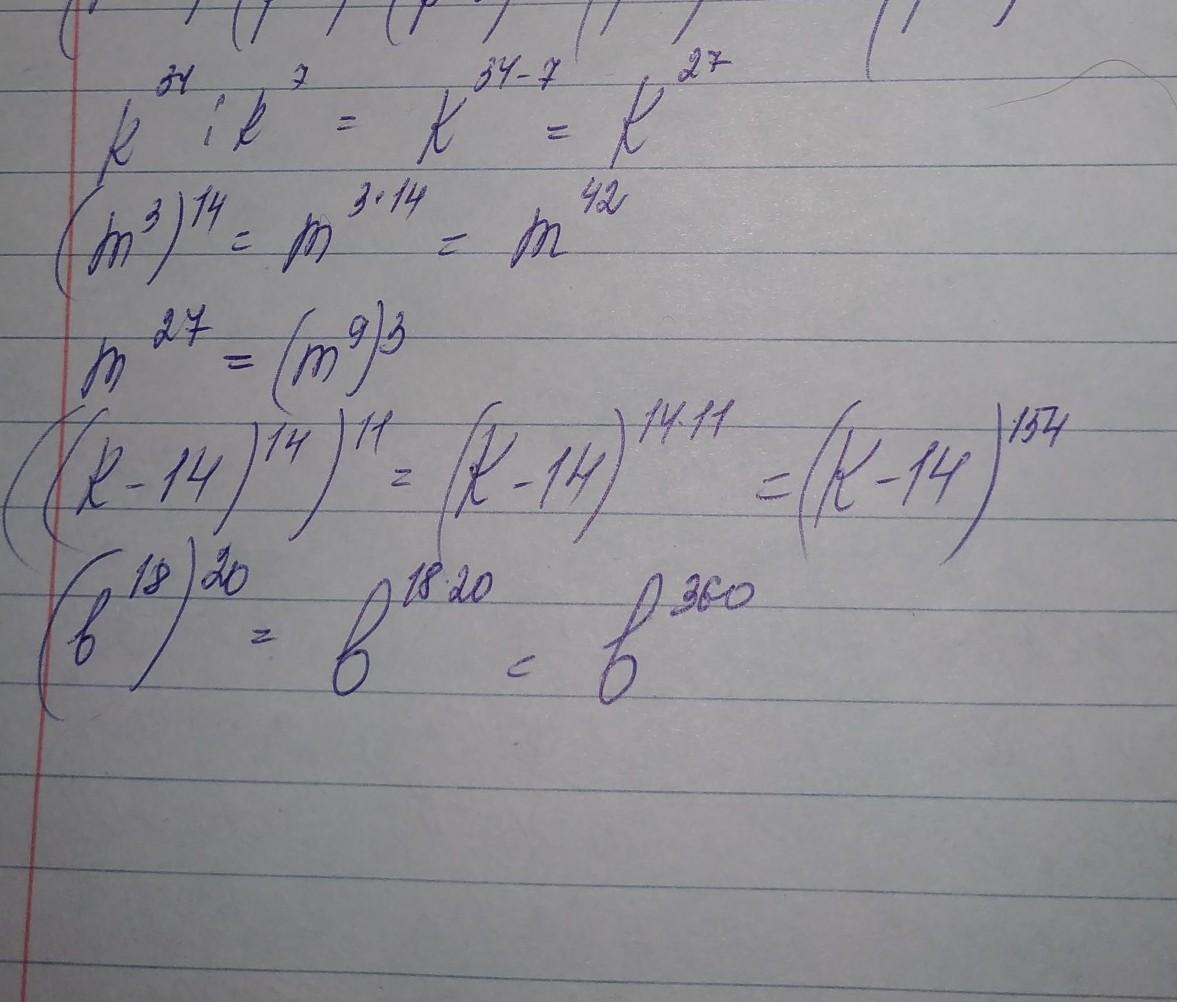 k³⁴ : k⁷ = k³⁴⁻⁷ = k²⁷
(m³)¹⁴ = m³·¹⁴ = m⁴²
m²⁷ = (m⁹)³
((k-14)¹⁴)¹¹ = (k-14)¹⁴·¹¹ = (k-14)¹⁵⁴
(b¹⁸)²⁰ = b¹⁸·²⁰ = b³⁶⁰